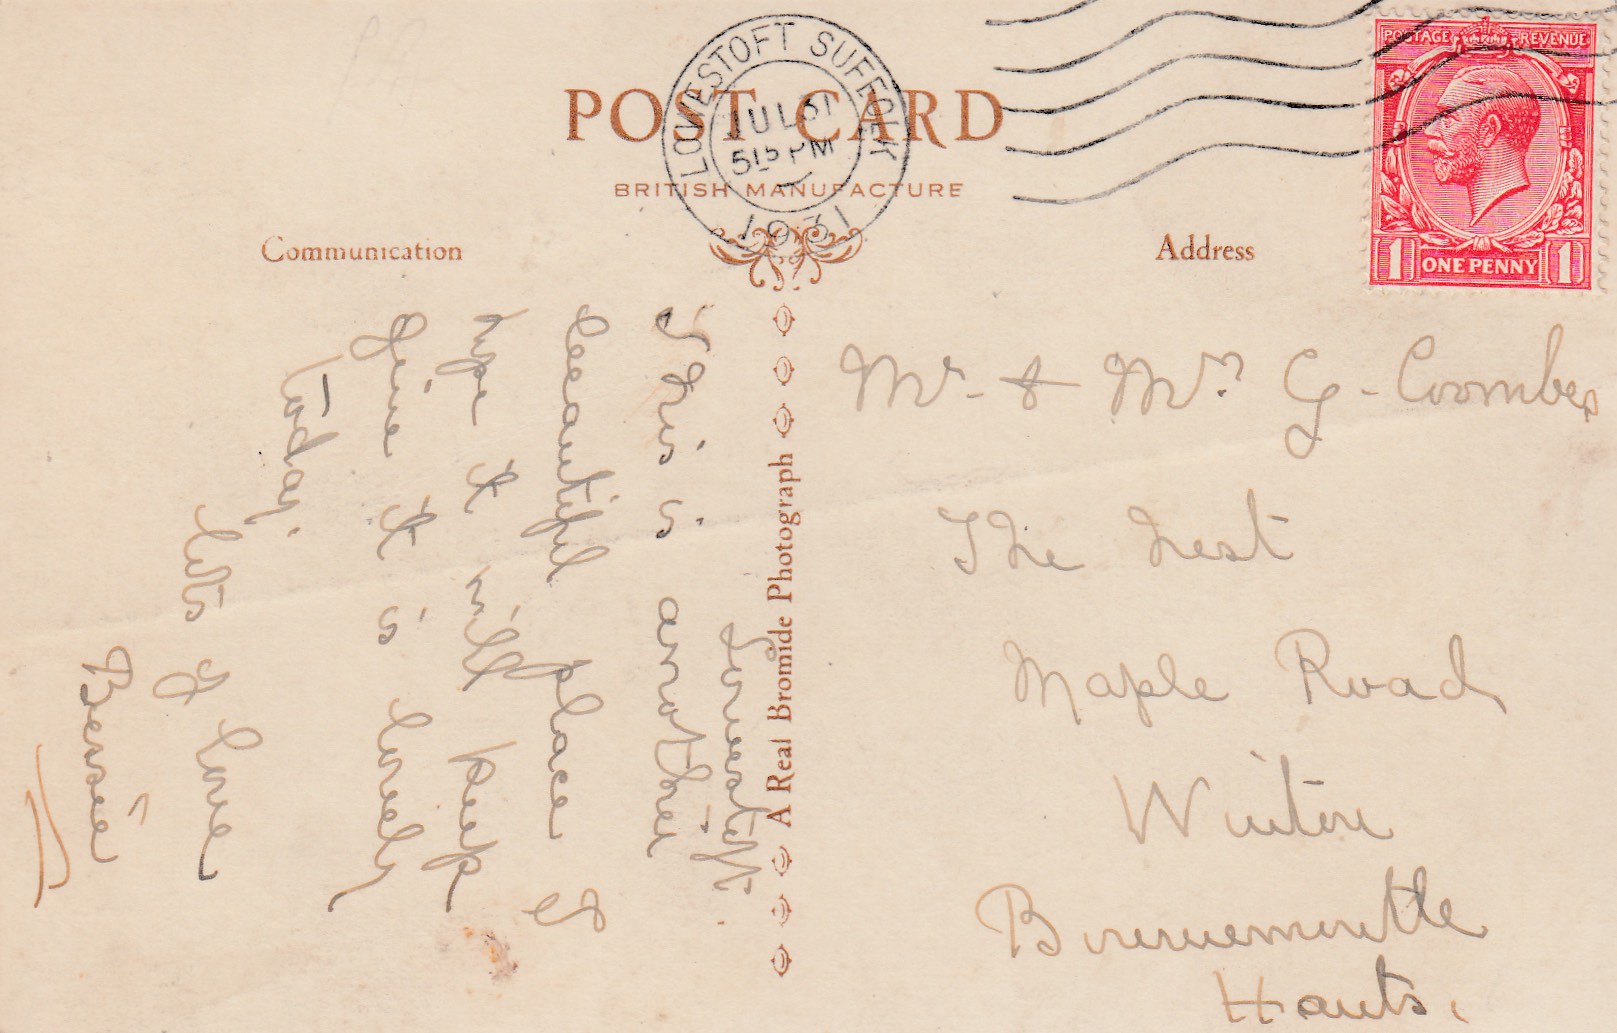 POST CARD
BRITISH MANUFACTURE
LOWESTOFT SUFFOLK
JUL 31
5 15 PM
1931
POSTAGE REVENUE
1 ONE PENNY 1
Communication
Address
A Real Bromide Photograph
Lowestoft.
This is another
beautiful place &
hope it will keep
fine it is lovely
today.
lots of love
Bessie
Mr. & Mrs. G. Coombes
The Nest
Maple Road
Winton
Bournemouth
Hants.